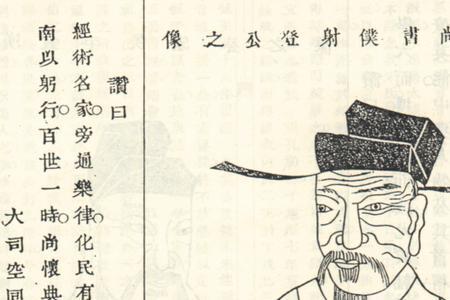 尚書僕射登公之像
讚曰
經術名家。旁通樂律。化民有
南以躬行。百世一時。尚懷典
大司空